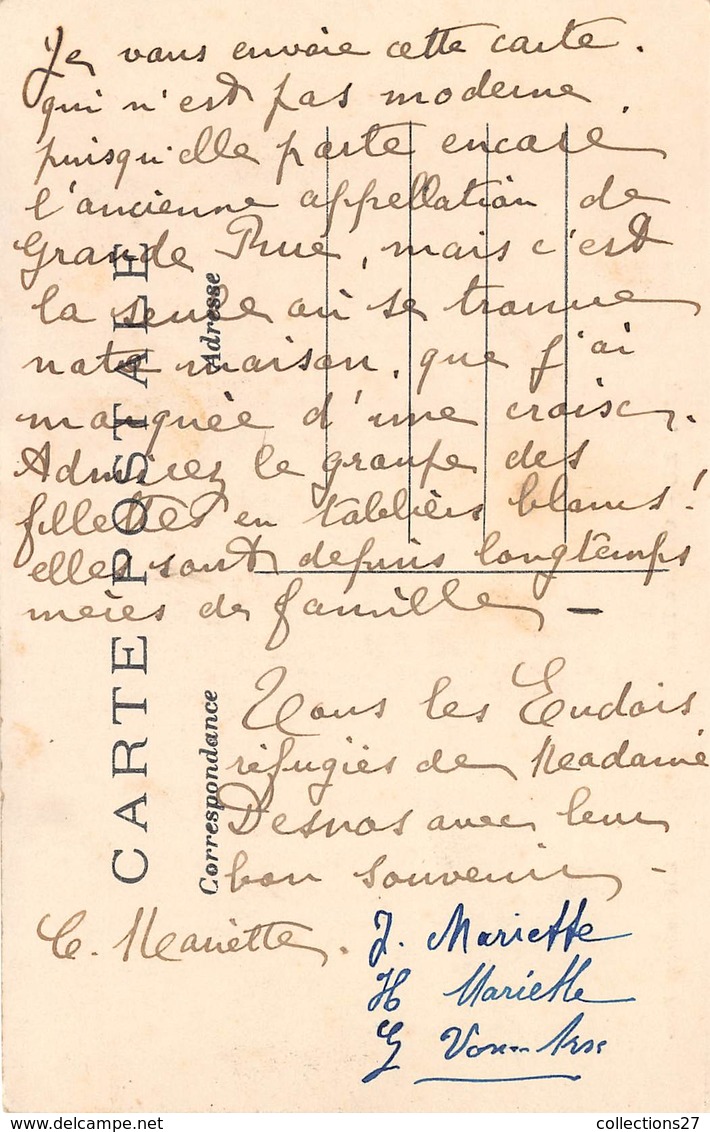 Je vous envoie cette carte.
qui n'est pas moderne,
puisqu'elle porte encore
l'ancienne appellation de
Grande Rue, mais c'est
la seule où se trouve
notre maison, que j'ai
marquée d'une croix.
Admirez le groupe des
fillettes en tabliers blancs!
elles sont depuis longtemps
mères de famille —
Tous les Eudois
réfugiés de Madame
Desnos avec leur
bon souvenir -
C. Mariette. J. Mariette
H Mariette
G
CARTE POSTALE
Correspondance
Adresse
collections27